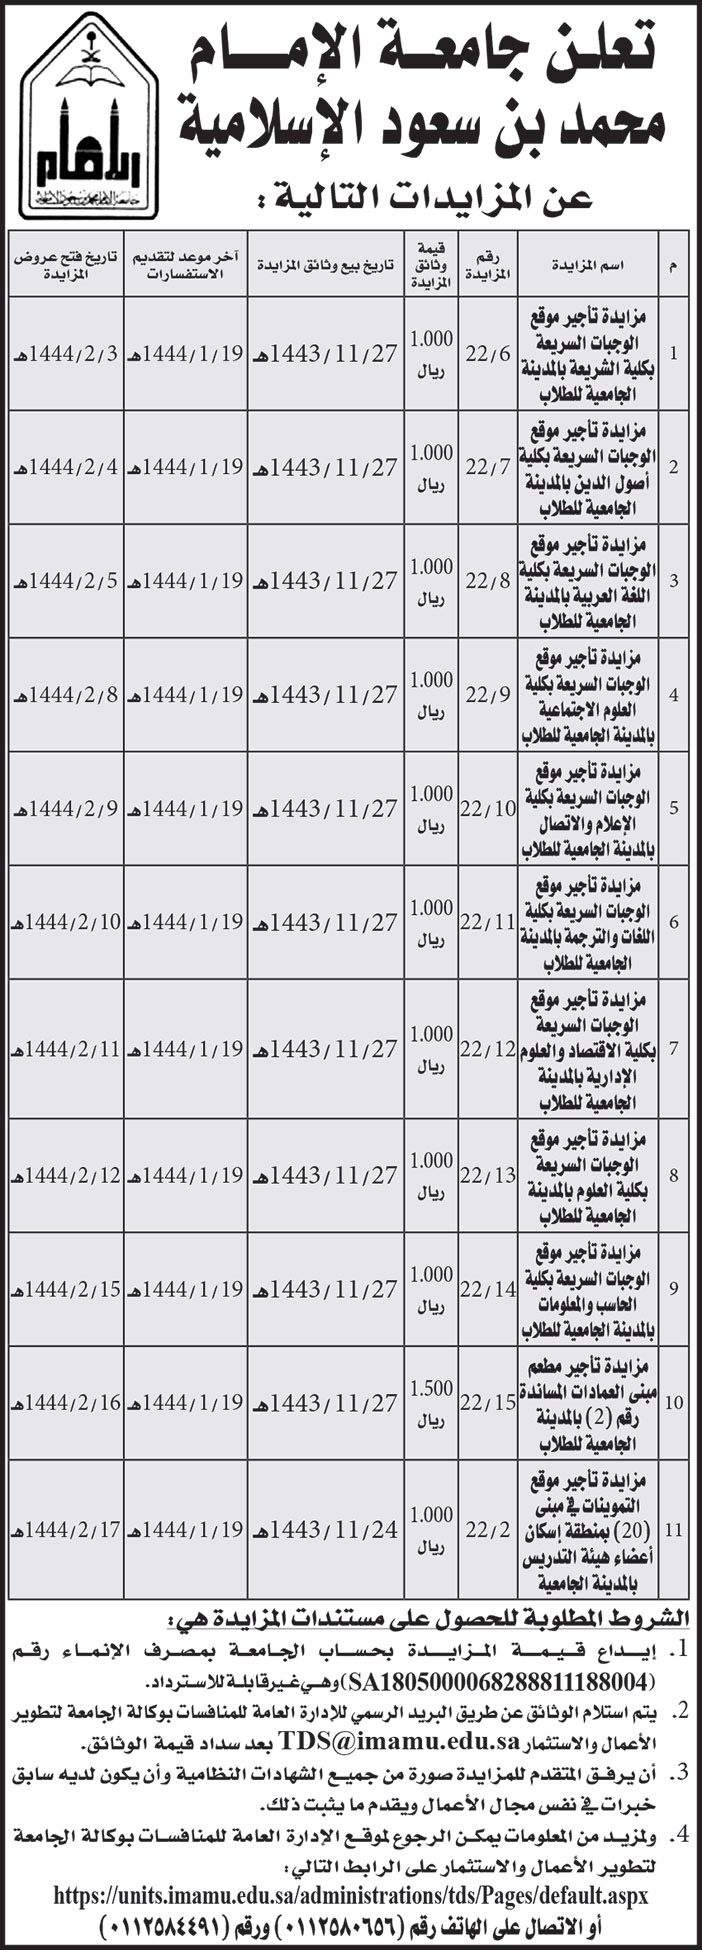 تعلن جامعة الإمام
محمد بن سعود الإسلامية
عن المزايدات التالية :
الإمام
م | اسم المزايدة | رقم المزايدة | قيمة وثائق المزايدة | تاريخ بيع وثائق المزايدة | آخر موعد لتقديم الاستفسارات | تاريخ فتح عروض المزايدة
1 | مزايدة تأجير موقع الوجبات السريعة بكلية الشريعة بالمدينة الجامعية للطلاب | 22/6 | 1.000 ريال | 1443/11/27هـ | 1444/1/19هـ | 1444/2/3هـ
2 | مزايدة تأجير موقع الوجبات السريعة بكلية أصول الدين بالمدينة الجامعية للطلاب | 22/7 | 1.000 ريال | 1443/11/27هـ | 1444/1/19هـ | 1444/2/4هـ
3 | مزايدة تأجير موقع الوجبات السريعة بكلية اللغة العربية بالمدينة الجامعية للطلاب | 22/8 | 1.000 ريال | 1443/11/27هـ | 1444/1/19هـ | 1444/2/5هـ
4 | مزايدة تأجير موقع الوجبات السريعة بكلية العلوم الاجتماعية بالمدينة الجامعية للطلاب | 22/9 | 1.000 ريال | 1443/11/27هـ | 1444/1/19هـ | 1444/2/8هـ
5 | مزايدة تأجير موقع الوجبات السريعة بكلية الإعلام والاتصال بالمدينة الجامعية للطلاب | 22/10 | 1.000 ريال | 1443/11/27هـ | 1444/1/19هـ | 1444/2/9هـ
6 | مزايدة تأجير موقع الوجبات السريعة بكلية اللغات والترجمة بالمدينة الجامعية للطلاب | 22/11 | 1.000 ريال | 1443/11/27هـ | 1444/1/19هـ | 1444/2/10هـ
7 | مزايدة تأجير موقع الوجبات السريعة بكلية الاقتصاد والعلوم الإدارية بالمدينة الجامعية للطلاب | 22/12 | 1.000 ريال | 1443/11/27هـ | 1444/1/19هـ | 1444/2/11هـ
8 | مزايدة تأجير موقع الوجبات السريعة بكلية العلوم بالمدينة الجامعية للطلاب | 22/13 | 1.000 ريال | 1443/11/27هـ | 1444/1/19هـ | 1444/2/12هـ
9 | مزايدة تأجير موقع الوجبات السريعة بكلية الحاسب والمعلومات بالمدينة الجامعية للطلاب | 22/14 | 1.000 ريال | 1443/11/27هـ | 1444/1/19هـ | 1444/2/15هـ
10 | مزايدة تأجير مطعم مبنى العمادات المساندة رقم (2) بالمدينة الجامعية للطلاب | 22/15 | 1.500 ريال | 1443/11/27هـ | 1444/1/19هـ | 1444/2/16هـ
11 | مزايدة تأجير موقع التموينات في مبنى (20) بمنطقة إسكان أعضاء هيئة التدريس بالمدينة الجامعية | 22/2 | 1.000 ريال | 1443/11/24هـ | 1444/1/19هـ | 1444/2/17هـ
الشروط المطلوبة للحصول على مستندات المزايدة هي:
1. إيداع قيمة المزايدة بحساب الجامعة بمصرف الإنماء رقم
(SA1805000068288811188004) وهي غير قابلة للاسترداد.
2. يتم استلام الوثائق عن طريق البريد الرسمي للإدارة العامة للمنافسات بوكالة الجامعة لتطوير
الأعمال والاستثمار TDS@imamu.edu.sa بعد سداد قيمة الوثائق.
3. أن يرفق المتقدم للمزايدة صورة من جميع الشهادات النظامية وأن يكون لديه سابق
خبرات في نفس مجال الأعمال ويقدم ما يثبت ذلك.
4. ولمزيد من المعلومات يمكن الرجوع لموقع الإدارة العامة للمنافسات بوكالة الجامعة
لتطوير الأعمال والاستثمار على الرابط التالي:
https://units.imamu.edu.sa/administrations/tds/Pages/default.aspx
أو الاتصال على الهاتف رقم (٠١١٢٥٨٠٦٥٦) ورقم (٠١١٢٥٨٤٤٩١)